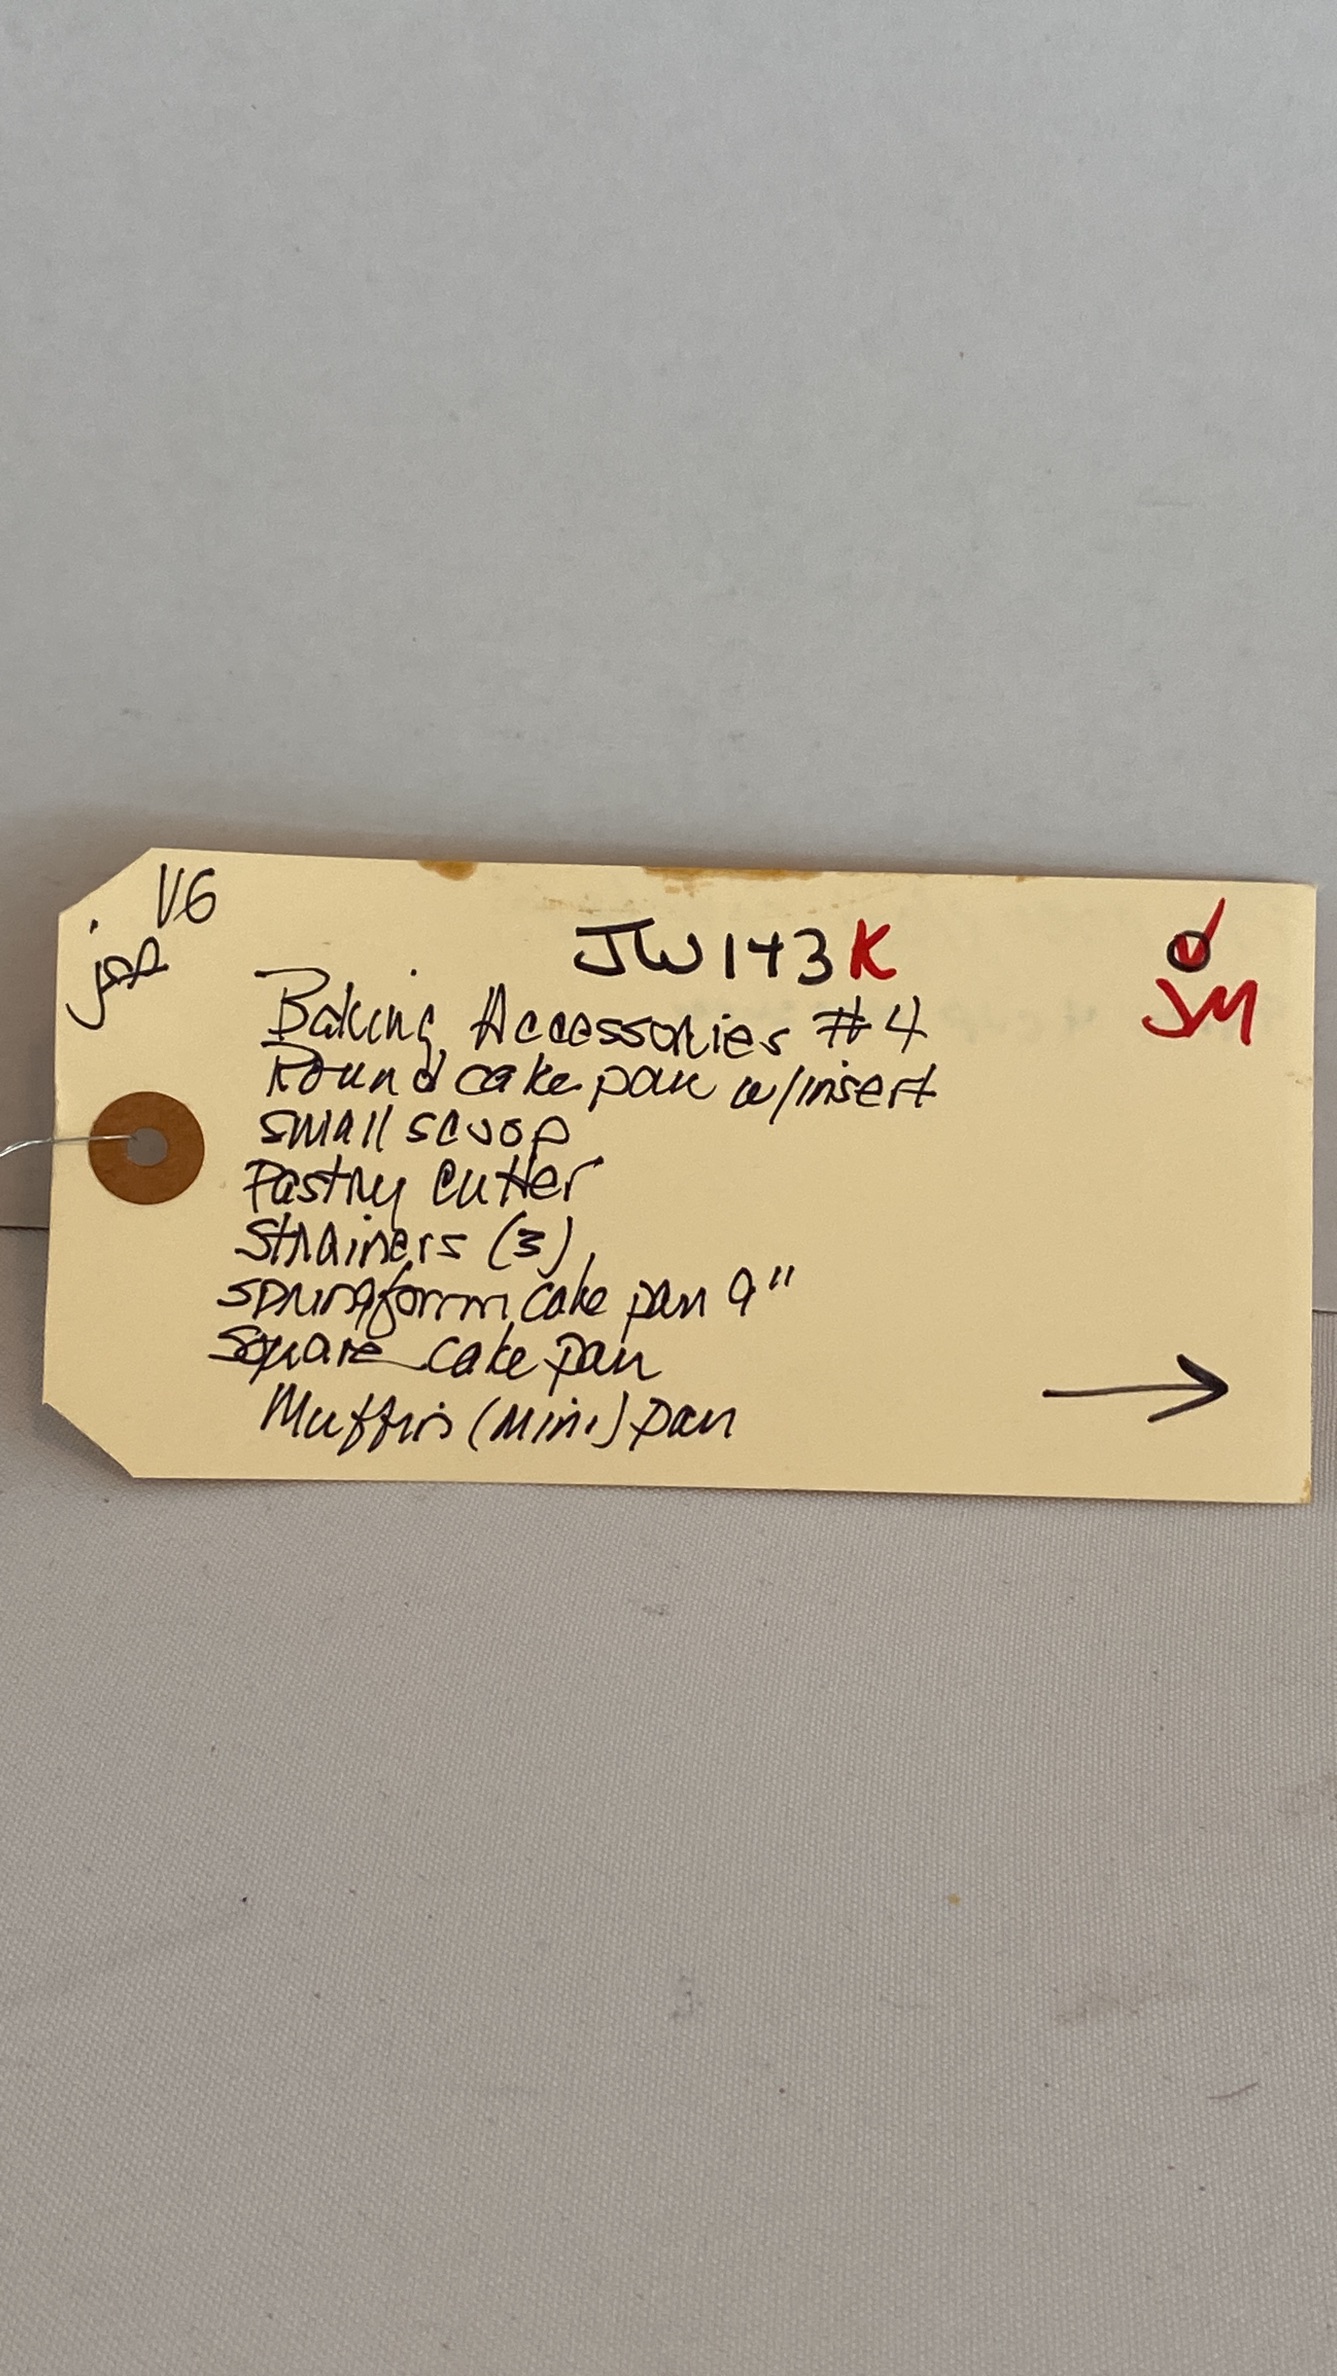 VG
JW143K
JM
Baking Accessories #4
Round cake pan w/insert
small scoop
Pastry cutter
Strainers (3)
springform cake pan 9"
Square cake pan
Muffin (Mini) pan